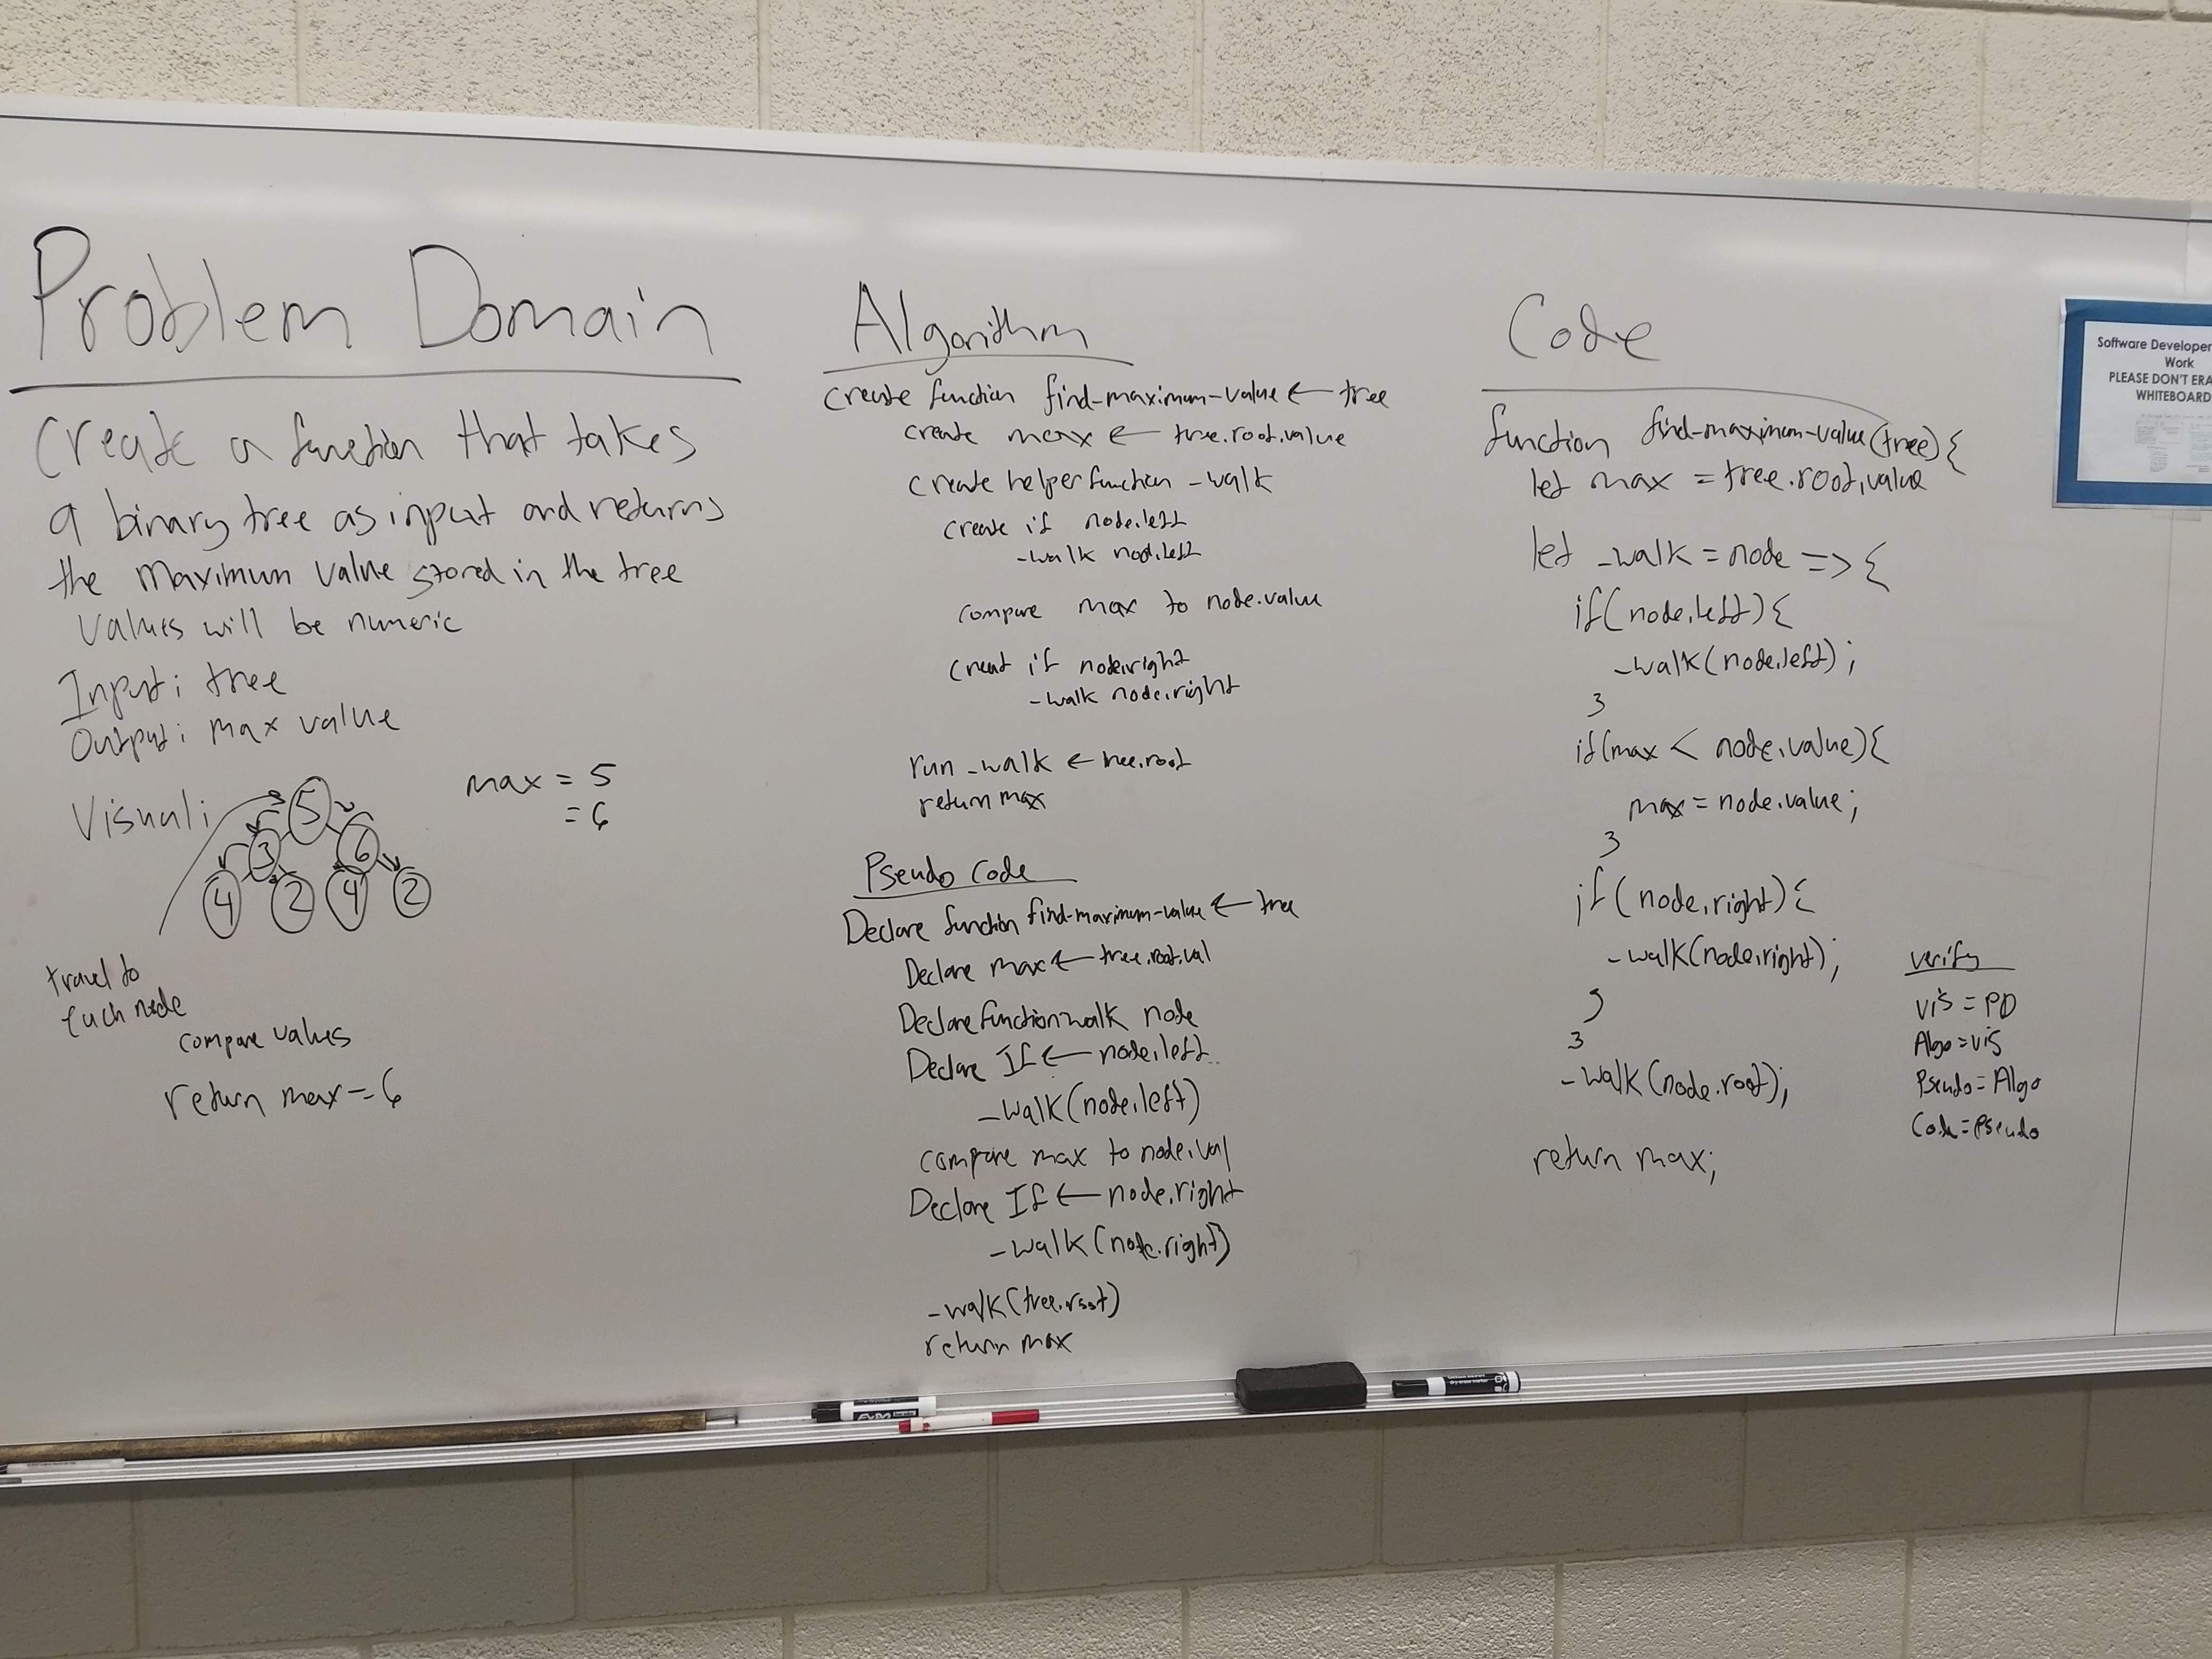 Problem Domain
Create a function that takes
a binary tree as input and returns
the maximum value stored in the tree
Values will be numeric
Input: tree
Output: max value
Visual:
5
3 6
4 2 4 2
max = 5
= 6
travel to
each node
compare values
return max = 6
Algorithm
create function find-maximum-value ← tree
create max ← tree.root.value
create helper function _walk
create if node.left
_walk node.left
compare max to node.value
creat if node.right
_walk node.right
run _walk ← tree.root
return max
Pseudo Code
Declare function find-maximum-value ← tree
Declare max ← tree.root.val
Declare function _walk node
Declare If ← node.left
_walk(node.left)
compare max to node.val
Declare If ← node.right
_walk(node.right)
_walk(tree.root)
return max
Code
function find-maximum-value(tree){
let max = tree.root.value
let _walk = node => {
if(node.left){
_walk(node.left);
}
if(max < node.value){
max = node.value;
}
if(node.right){
_walk(node.right);
}
}
_walk(node.root);
return max;
verify
vis = PD
Algo = vis
Pseudo = Algo
Code = Pseudo
Software Developer
Work
PLEASE DON'T ERA
WHITEBOARD
EXPO